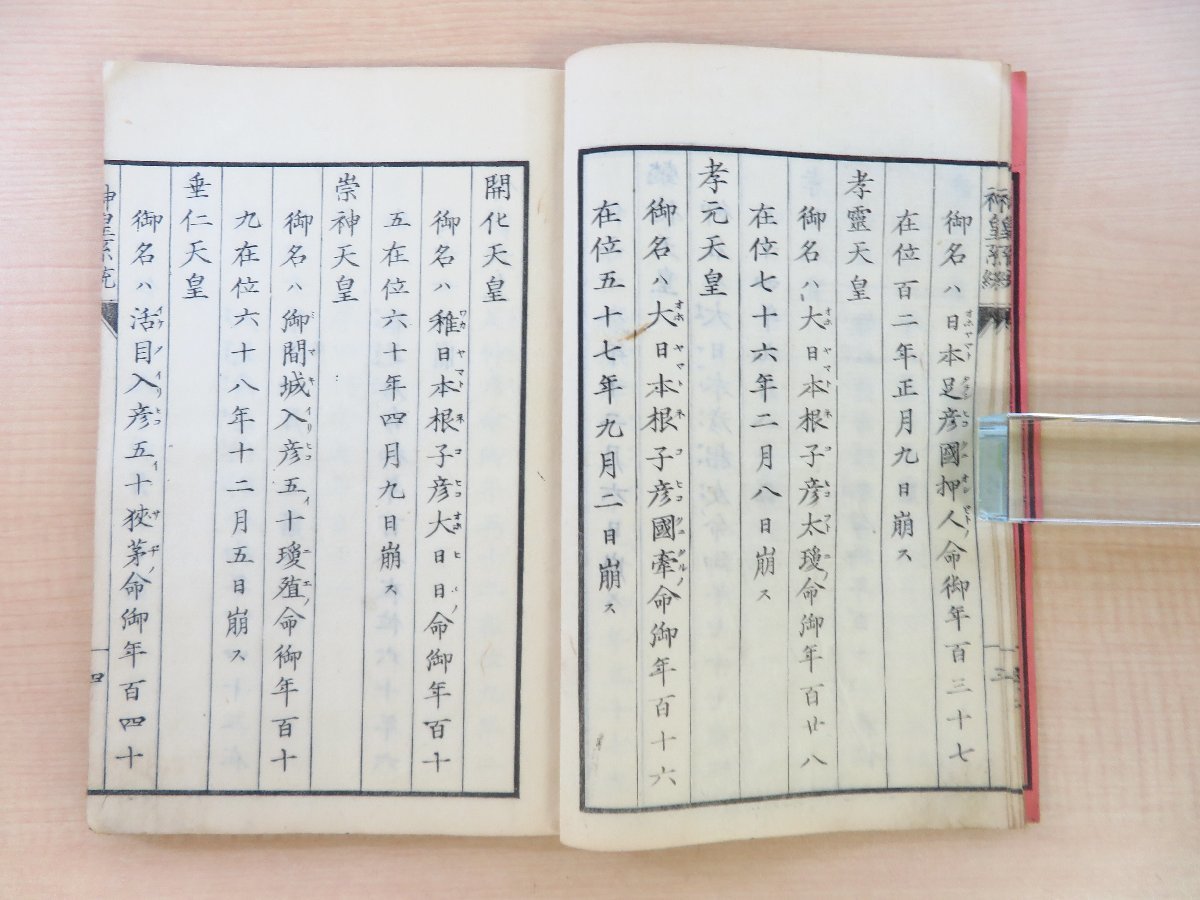 御名ハ日本足彦國押人命御年百三十七
在位百二年正月九日崩ス
孝靈天皇
御名ハ大日本根子彦太瓊命御年百廿八
在位七十六年二月八日崩ス
孝元天皇
御名ハ大日本根子彦國牽命御年百十六
在位五十七年九月二日崩ス
開化天皇
御名ハ稚日本根子彦大日日命御年百十
五在位六十年四月九日崩ス
崇神天皇
御名ハ御間城入彦五十瓊殖命御年百十
九在位六十八年十二月五日崩ス
垂仁天皇
御名ハ活目入彦五十狹茅命御年百四十